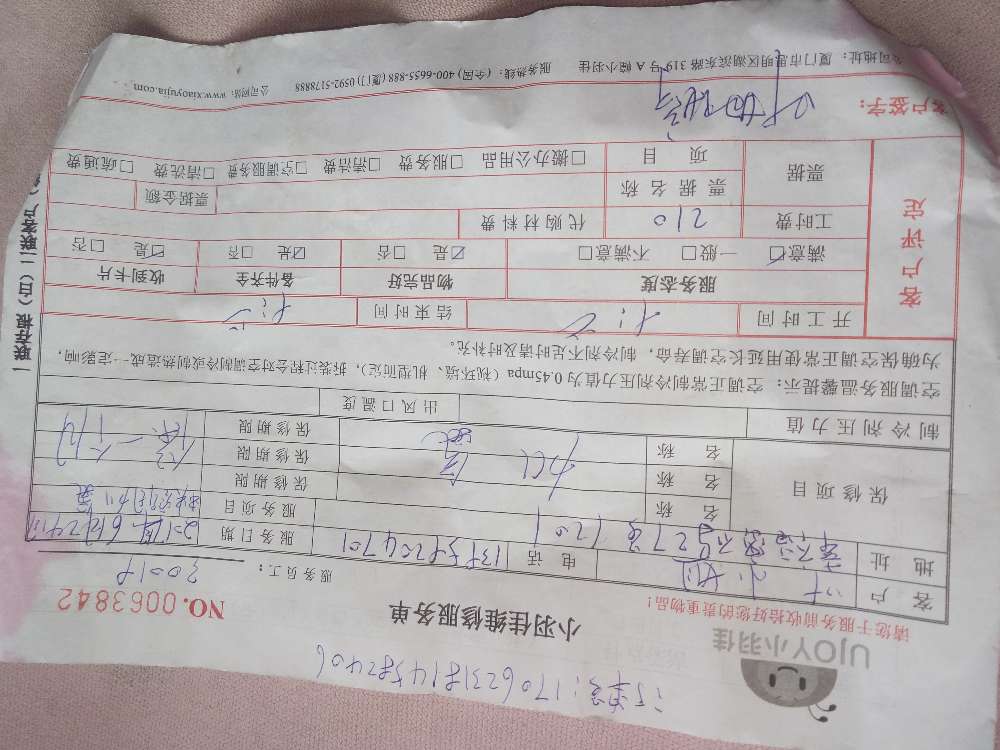 订单号:1706231814582406
UJOY小羽佳
小羽佳维修服务单
NO. 0063842
请您于服务前收拾好您的贵重物品!
服务员工:
客户
电话
服务日期
地址
27号 1201
服务项目
保修项目
名称
保修期限
名称
保修期限
名称
保修期限
制冷剂压力值
出风口温度
空调服务温馨提示:空调正常制冷剂压力值为0.45mpa(视环境、机型而定),拆装过程会对空调制冷或制热造成一定影响,
为确保空调正常使用延长空调寿命,制冷剂不足时请及时补充。
开工时间
结束时间
客户评定
服务态度 物品完好 备件齐全 收到卡片
满意☑ 一般□ 不满意□ ☑是 □否 ☑是 □否 ☑是 □否
工时费 210 代购材料费
票据 票据名称 票据金额
项目 □搬办公用品 □服务费 □清洁费 □空调服务费 □清洗费 □疏通费
客户签字:
公司地址:厦门市思明区湖滨东路319号A幢小羽佳 服务热线:(全国)400-6655-888(厦门)0592-5178888 公司网站:www.xiaoyujia.com
一联存根(白)二联客户(